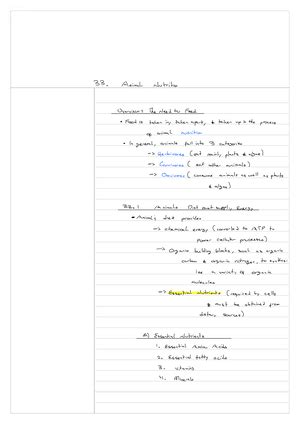 33. Animal Nutrition
Overview: The need to Feed
• Food is taken in, taken apart, & taken up in the process
of animal nutrition
• In general, animals fall into 3 categories
-> Herbivores (eat mainly plants & algae)
-> Carnivores (eat other animals)
-> Omnivores (consume animals as well as plants
& algae)
33.1 Animals Diet must supply Energy,
• Animals diet provides
-> chemical energy (converted to ATP to
power cellular processes)
-> Organic building blocks, such as organic
carbon & organic nitrogen, to
a variety of organic
molecules
-> Essential nutrients (required by cells
& must be obtained from
dietary sources)
A) Essential nutrients
1. Essential Amino Acids
2. Essential fatty acids
3. Vitamins
4. Minerals